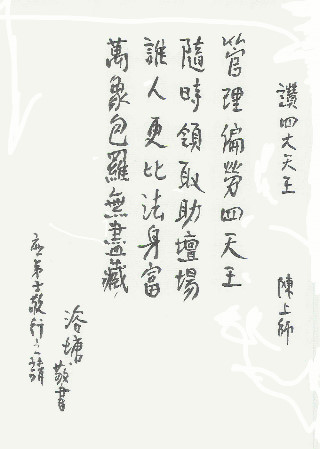 讚四大天王 陳上師
管理偏勞四天王
隨時領取助壇場
誰人更比法身富
萬象包羅無盡藏
浴塘敬書
應弟子敬行之請